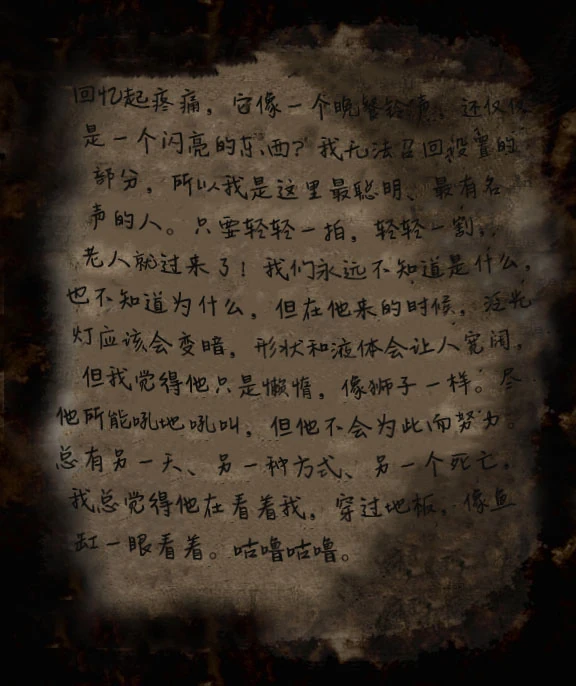 回忆起疼痛，它像一个晚餐铃声，还仅仅
是一个闪亮的东西？我无法召回设置的
部分，所以我是这里最聪明、最有名
声的人。只要轻轻一拍，轻轻一割，
老人就过来了！我们永远不知道是什么，
也不知道为什么，但在他来的时候，泛光
灯应该会变暗，形状和液体会让人宽阔，
但我觉得他只是懒惰，像狮子一样。尽
他所能吼地吼叫，但他不会为此而努力。
总有另一天、另一种方式、另一个死亡。
我总觉得他在看着我，穿过地板，像鱼
缸一眼看着。咕噜咕噜。